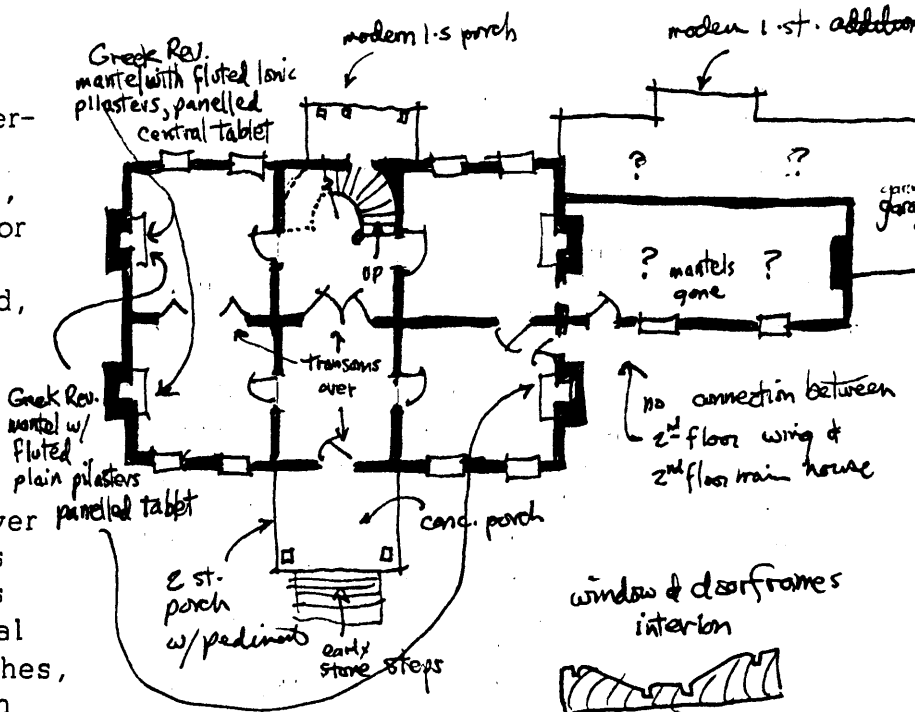 Greek Rev.
mantel with fluted Ionic
pilasters, panelled
central tablet
modern 1.s porch
modern 1.st. addition
er-
,
or
d,
?
?
?
?
mantels
gone
UP
transoms
over
Greek Rev.
mantel w/
fluted
plain pilasters
panelled tablet
no connection between
2nd floor wing &
2nd floor main house
conc. porch
2 st.
porch
w/ pediment
early
stone steps
ver
s
s
al
hes,
n
window & doorframes
interior